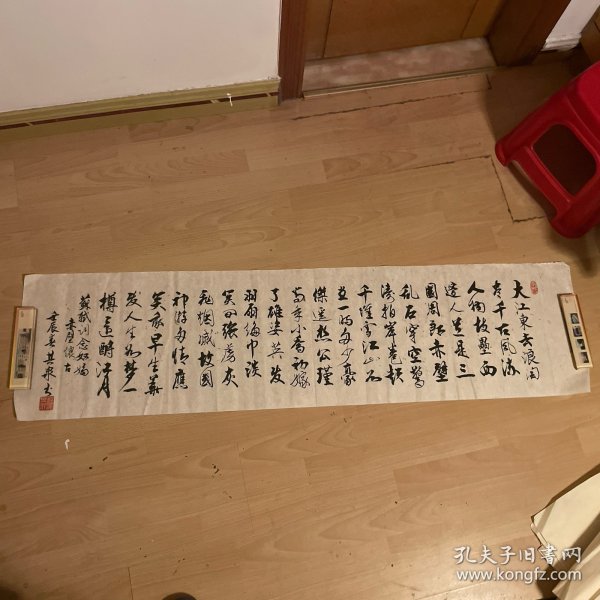 大江東去浪淘
盡千古風流
人物故壘西
邊人道是三
國周郎赤壁
乱石穿空驚
濤拍岸卷起
千堆雪江山如
画一時多少豪
傑遥想公瑾
當年小喬初嫁
了雄姿英发
羽扇綸巾谈
笑间强虜灰
飛煙滅故國
神游多情應
笑我早生華
发人生如梦一
樽還酹江月
蘇軾词念奴嬌
赤壁懷古
孔夫子旧书网
www.kongfz.com